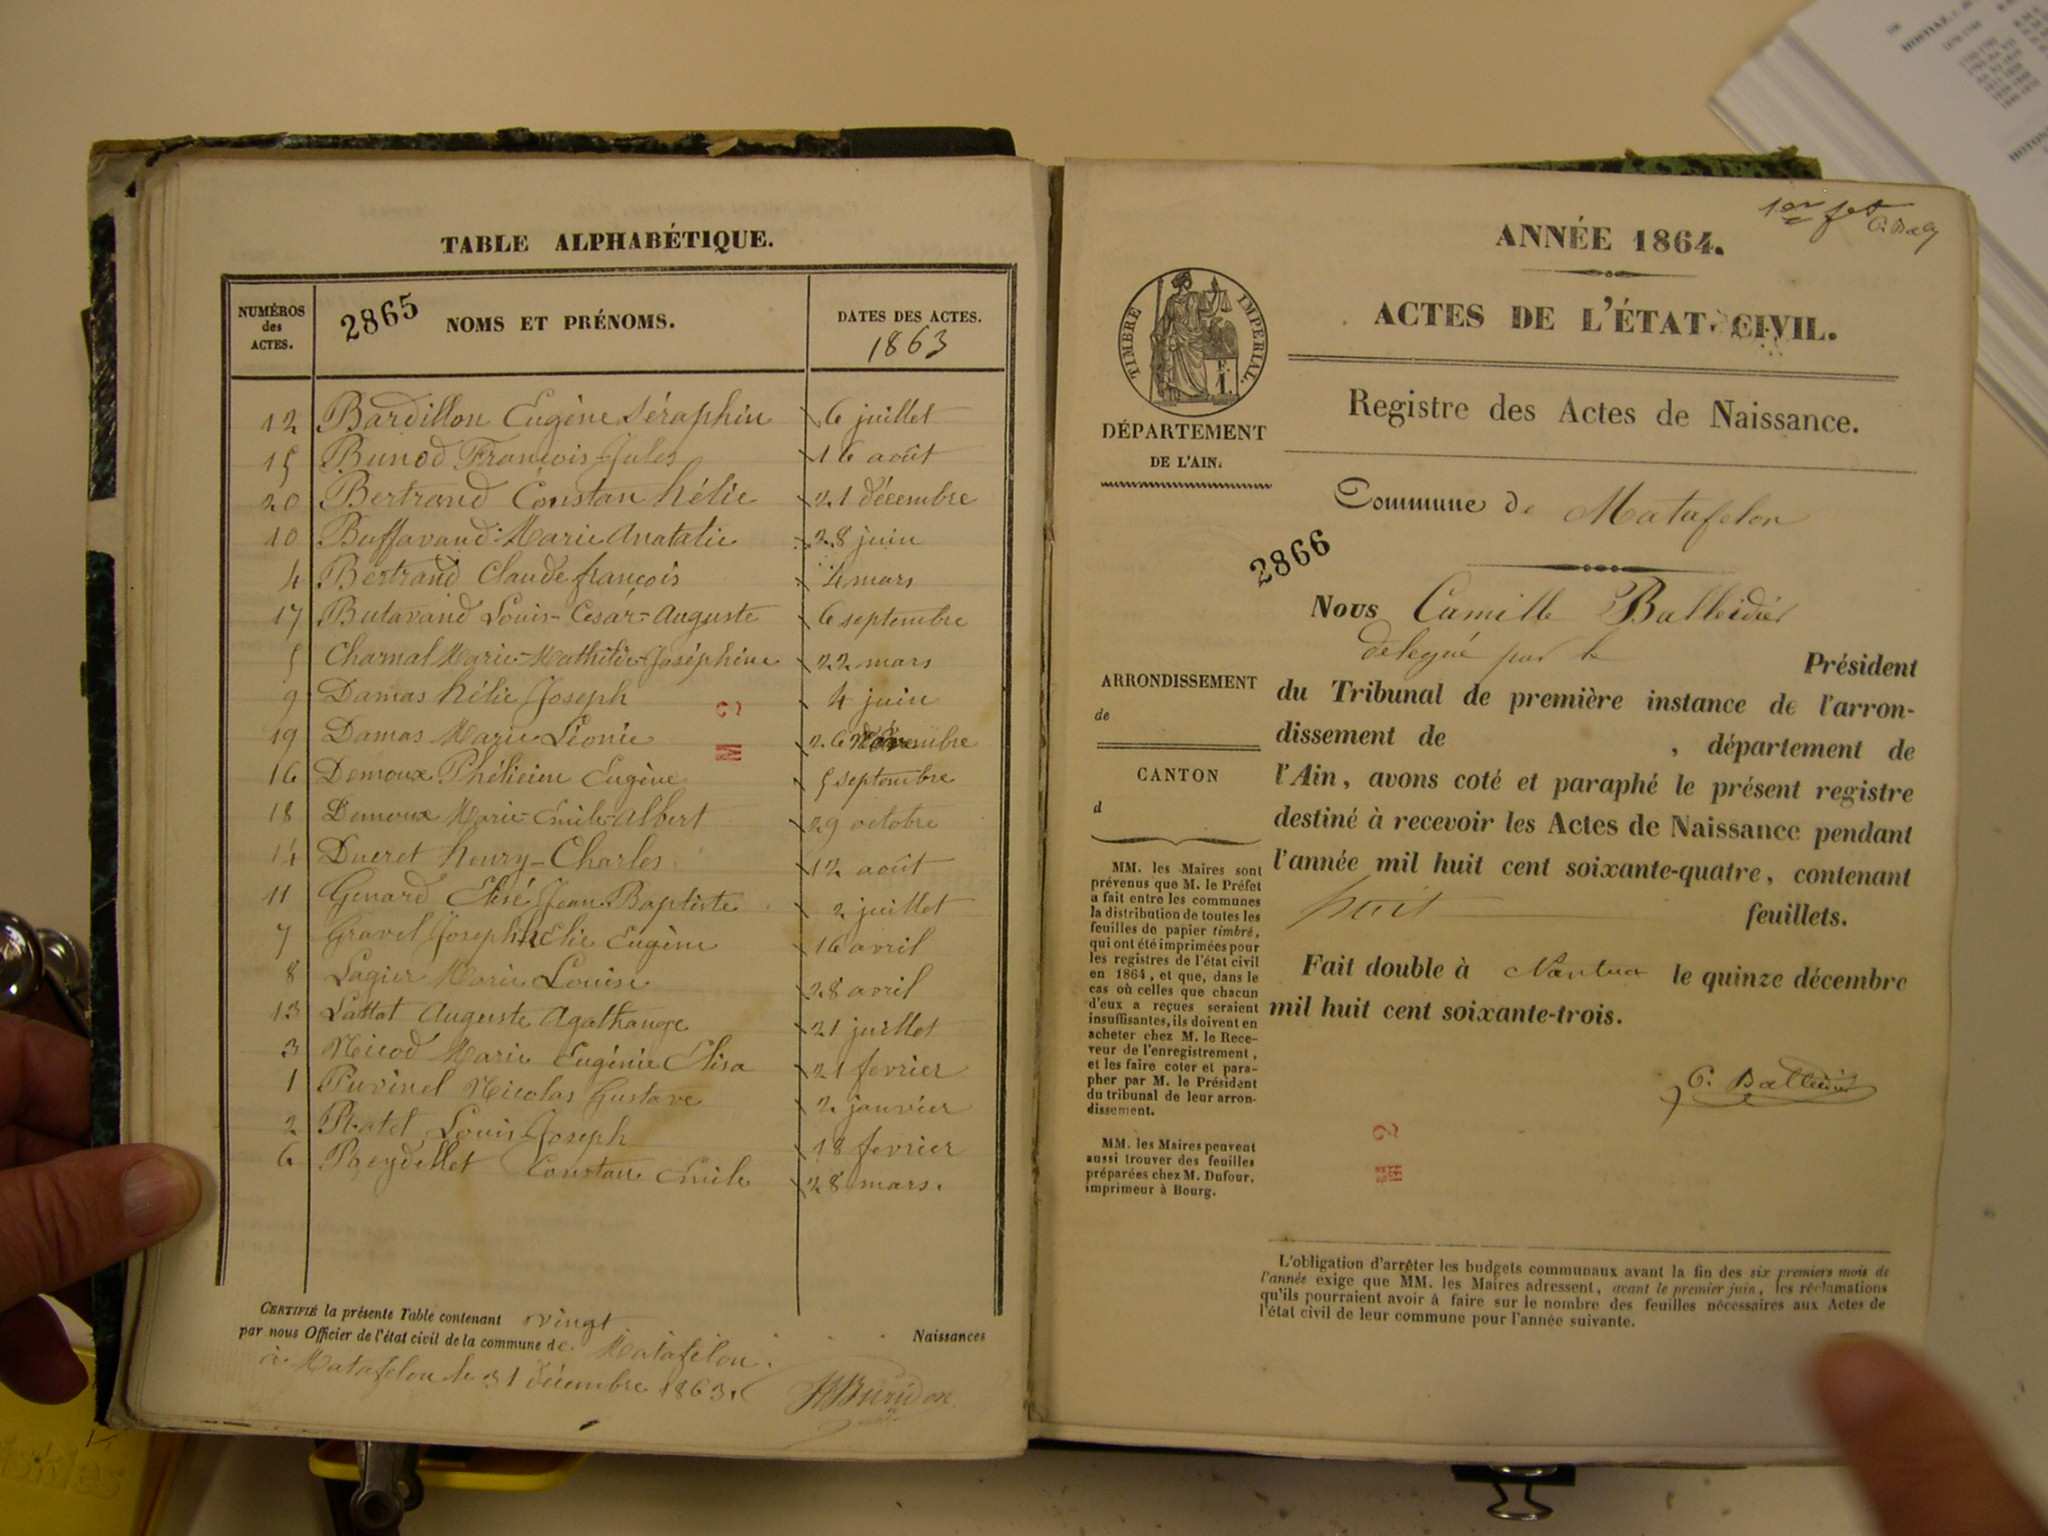 TABLE ALPHABÉTIQUE.
NUMÉROS des ACTES.
2865
NOMS ET PRÉNOMS.
DATES DES ACTES.
1863
12 Bardillon Eugène Séraphin 6 juillet
15 Bunod François Jules 16 août
20 Bertrand Constan hélie 21 décembre
10 Buffavand Marie Anatalie 28 juin
4 Bertrand Claude françois 4 mars
17 Butavand Louis-Cesar-Auguste 6 septembre
5 Charnal Marie-Mathilde-Joséphine 22 mars
9 Damas hélie Joseph 4 juin
19 Damas Marie Léonie 26
16 Demoux Phélicien Eugène 5 septembre
18 Demoux Marie-Emile-Albert 29 octobre
14 Ducret henry-Charles 12 août
11 Genard Elisé Jean Baptiste 2 juillet
7 Gravel Joseph Elie Eugène 16 avril
8 Lagier Marie Louise 28 avril
13 Lattat Auguste Agathange 21 juillet
3 Nicod Marie Eugénie Elisa 21 fevrier
1 Puvinel Nicolas Gustave 2 janvier
2 Louis Joseph 18 fevrier
6 Constan Emile 28 mars.
CERTIFIÉ la présente Table contenant vingt Naissances
par nous Officier de l'état civil de la commune de Matafelon.
à Matafelon le 31 décembre 1863.
1er
ANNÉE 1864.
TIMBRE IMPERIAL.
ACTES DE L'ÉTAT-CIVIL.
Registre des Actes de Naissance.
DÉPARTEMENT
DE L'AIN.
Commune de Matafelon
2866
Nous Camille Balleidier
délegué par le Président
du Tribunal de première instance de l'arron-
dissement de , département de
l'Ain, avons coté et paraphé le présent registre
destiné à recevoir les Actes de Naissance pendant
l'année mil huit cent soixante-quatre, contenant
huit feuillets.
Fait double à Nantua le quinze décembre
mil huit cent soixante-trois.
C. Balleidier
ARRONDISSEMENT
de
CANTON
d
MM. les Maires sont
prévenus que M. le Préfet
a fait entre les communes
la distribution de toutes les
feuilles de papier timbré,
qui ont été imprimées pour
les registres de l'état civil
en 1864, et que, dans le
cas où celles que chacun
d'eux a reçues seraient
insuffisantes, ils doivent en
acheter chez M. le Rece-
veur de l'enregistrement,
et les faire coter et para-
pher par M. le Président
du tribunal de leur arron-
dissement.
MM. les Maires peuvent
aussi trouver des feuilles
préparées chez M. Dufour,
imprimeur à Bourg.
L'obligation d'arrêter les budgets communaux avant la fin des six premiers mois de
l'année exige que MM. les Maires adressent, avant le premier juin, les réclamations
qu'ils pourraient avoir à faire sur le nombre des feuilles nécessaires aux Actes de
l'état civil de leur commune pour l'année suivante.